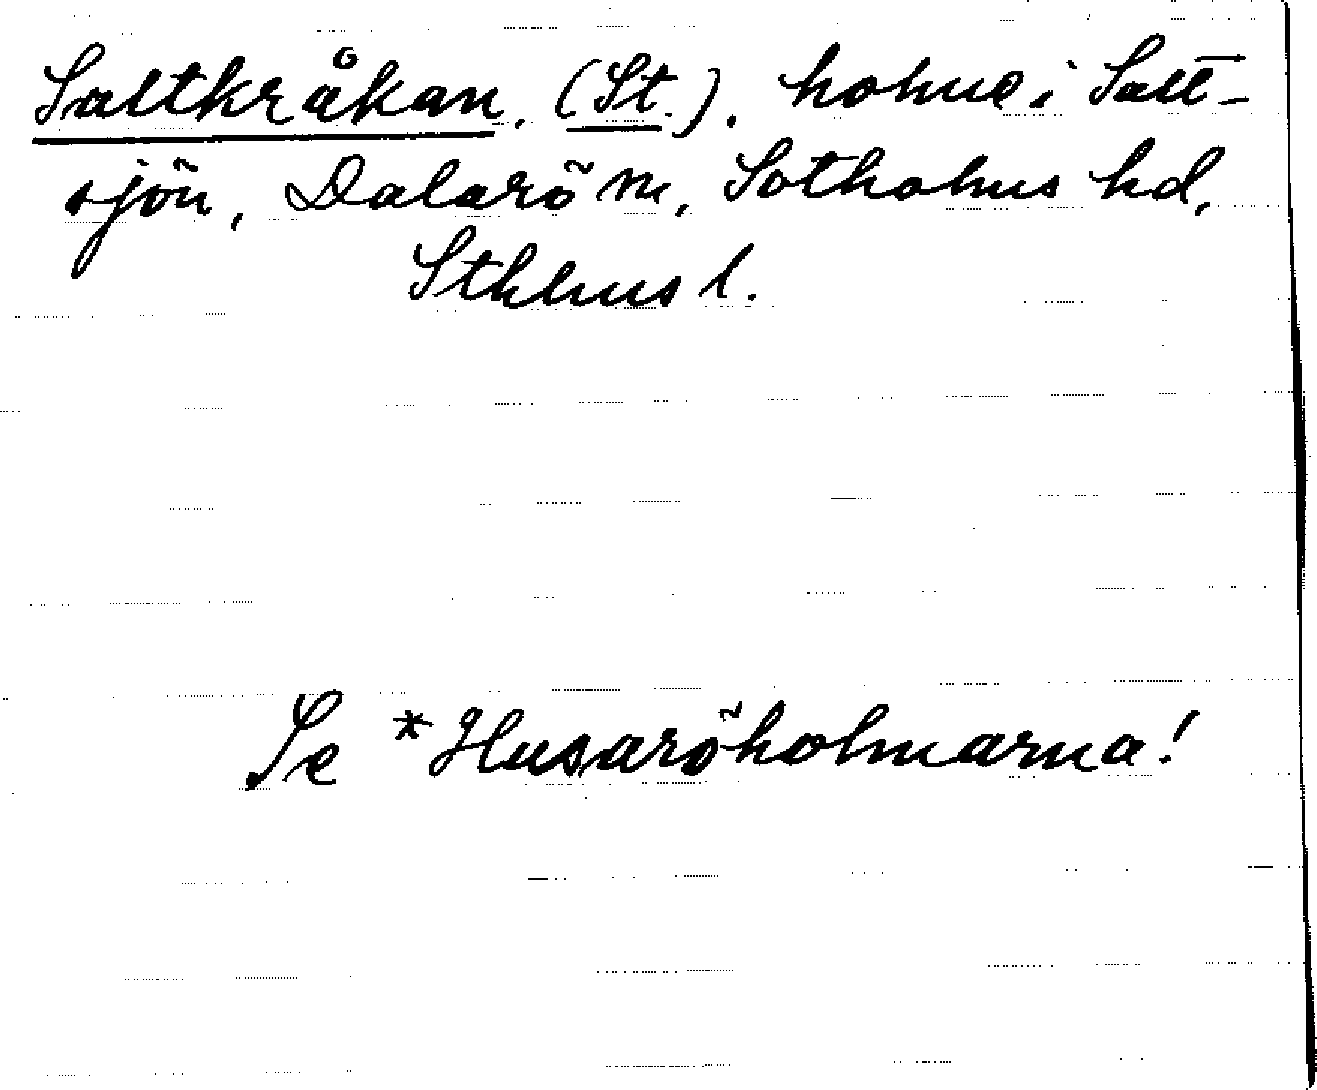 Saltkråkan. (St.). holme i Salt-
sjön, Dalarö sn, Sotholms hd,
Sthlms l.
Se *Husaröholmarna!